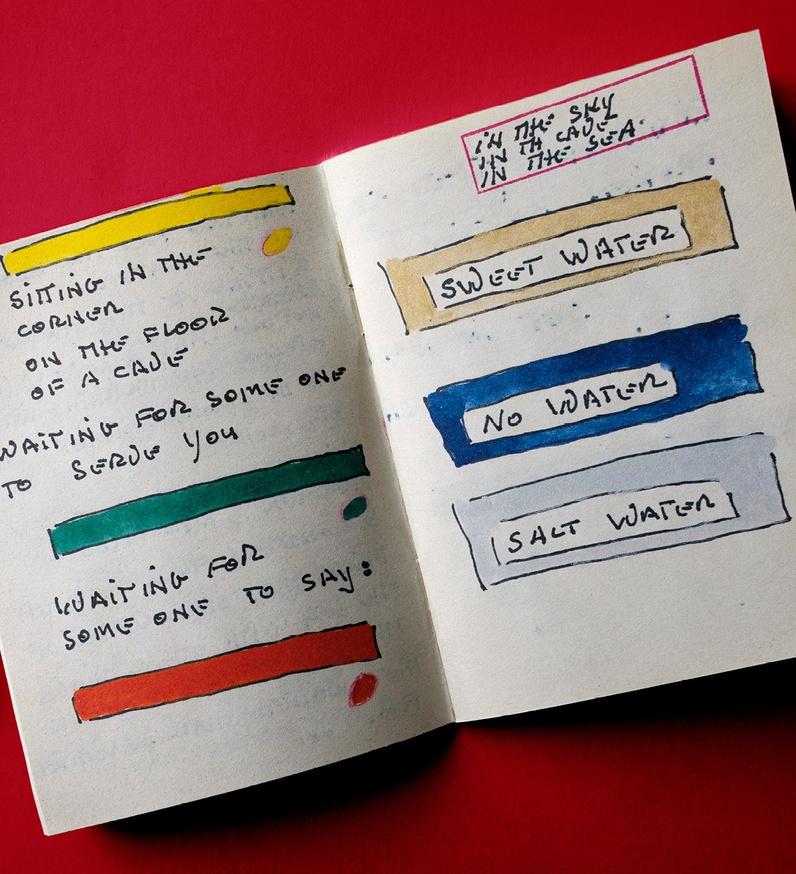 SITTING IN THE
CORNER
ON THE FLOOR
OF A CAVE
WAITING FOR SOME ONE
TO SERVE YOU
WAITING FOR
SOME ONE TO SAY:
IN THE SKY
IN TH CAVE
IN THE SEA.
SWEET WATER
NO WATER
SALT WATER